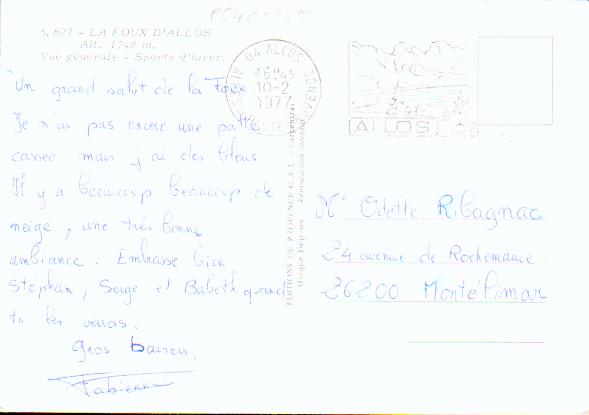 00400025
5. 821 - LA FOUX D'ALLOS
Alt. 1748 m.
Vue générale - Sports d'hiver.
Un grand salut de la Foux
Je n'ai pas encore une patte
cassée mais j'ai des bleus
Il y a beaucoup beaucoup de
neige, une très bonne
ambiance. Embrasse bien
Stéphan, Serge et Babeth quand
tu les verras.
Gros baisers,
Fabienne
04 ALLOS
16H45
10-2
1977
ALLOS
EDITIONS DE PROVENCE G.A.L. - Carpentras
Marque Déposée Reproduction interdite
Me Odette Ribagnac
24 avenue de Rochemaure
26200 Montélimar